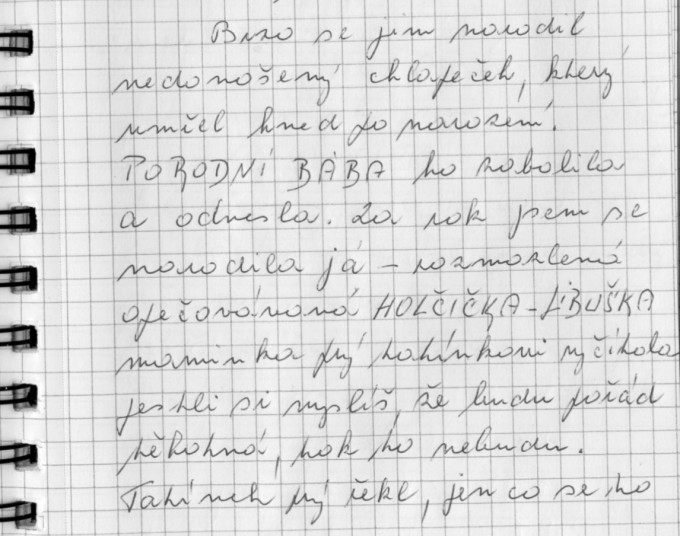 Brzo se jim narodil
nedonošený chlapeček, který
umřel hned po narození.
PORODNÍ BÁBA ho zabalila
a odnesla. Za rok jsem se
narodila já – rozmazlená
opečovávaná HOLČIČKA – LIBUŠKA
maminka prý tatínkovi vyčítala
jestli si myslíš, že budu pořád
těhotná, tak to nebudu.
Tatínek prý řekl, jen co se to